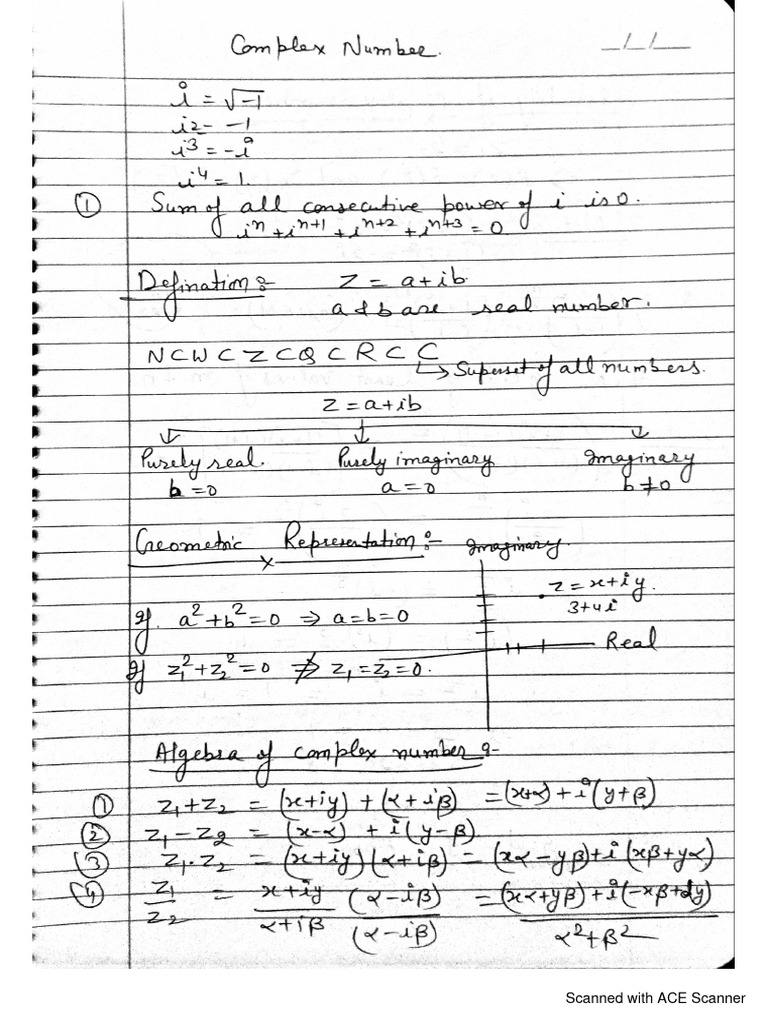 Complex Number.
_/_/_
i = √-1
i2 = -1
i³ = -i
i⁴ = 1.
① Sum of all consecutive power of i is 0.
iⁿ + iⁿ⁺¹ + iⁿ⁺² + iⁿ⁺³ = 0
Defination:- Z = a+ib
a & b are real number.
N⊂W⊂Z⊂Q⊂R⊂C
↳ Superset of all numbers.
Z = a+ib
Purely real. Purely imaginary Imaginary
b = 0 a = 0 b ≠ 0
Geometric Representation:- Imaginary.
Z = x+iy.
3+4i
If a² + b² = 0 ⇒ a = b = 0
Real
If z₁² + z₂² = 0 ⇏ z₁ = z₂ = 0.
Algebra of complex number:-
① z₁+z₂ = (x+iy) + (α+iβ) = (x+α) + i(y+β)
② z₁-z₂ = (x-α) + i(y-β)
③ z₁.z₂ = (x+iy)(α+iβ) = (xα-yβ)+i(xβ+yα)
④ z₁/z₂ = (x+iy)/(α+iβ) (α-iβ)/(α-iβ) = ((xα+yβ)+i(-xβ+αy))/(α²+β²)
Scanned with ACE Scanner